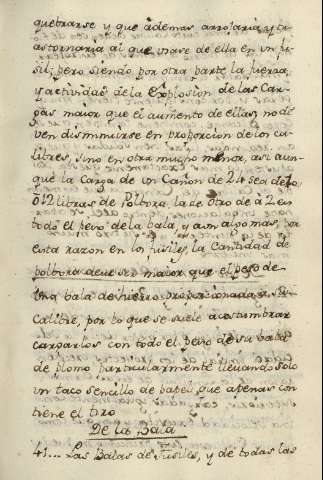 quebrarse y que ademas arrojaria, y tr
astornaria al que usase de ella en un fu
sil; pero siendo por otra parte la fuerza,
y actividad de la Explosion de las Car
gas maior que el aumento de ellas no de
ven disminuirse en proporcion de los ca
libres, sino en otra mucho menor, asi aun
que la Carga de un Cañon de 24 sea de
ó 12 libras de Polbora, la de otro de á 2 es
todo el peso de la bala, y aun algo mas, por
esta razon en los fusiles, la Cantidad de
polbora deve ser maior que el peso de
Una bala de hierro proporcionada a su
Calibre, por lo que se suele acostumbrar
cargarlos con todo el peso de su bala
de plomo particularmente llevando solo
un taco sencillo de papel, que apenas con
tiene el tiro
De la Bala
41... Las Balas de Fusiles, y de todas las